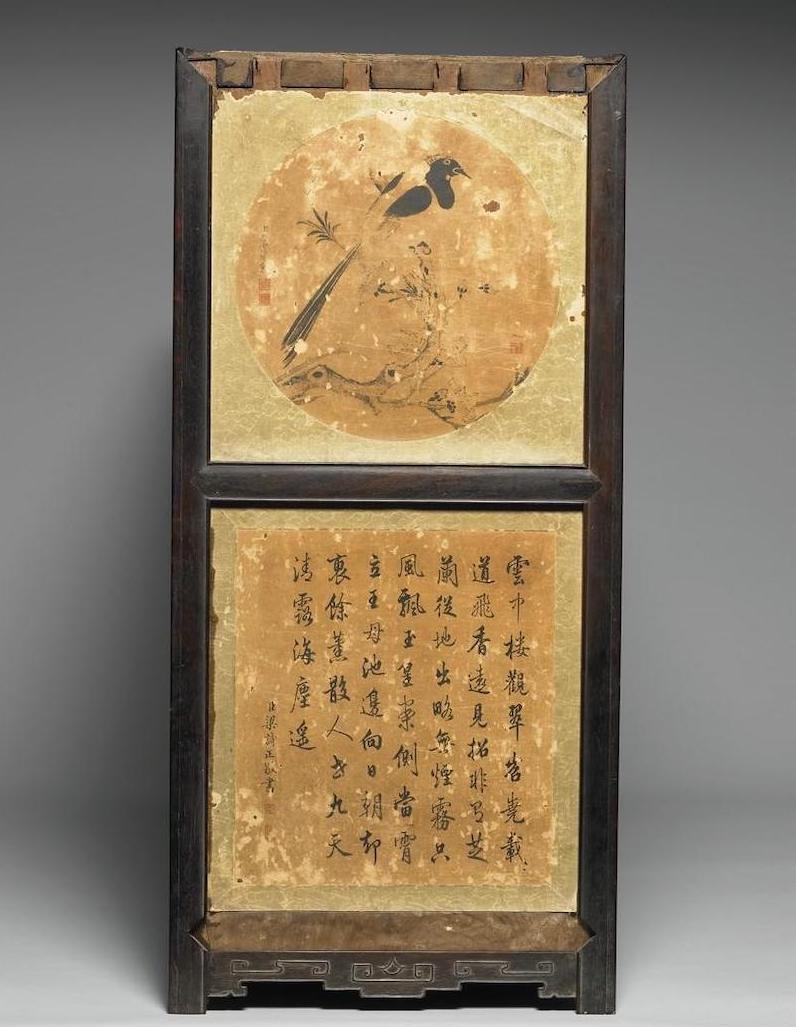 雲中樓觀翠岧嶤載
道飛香遠見招非有芝
蘭從地出略無煙霧只
風飄玉皇案側當霄
立王母池邊向日朝却
裛餘薰散人世九天
清露海塵遙
臣梁詩正敬書